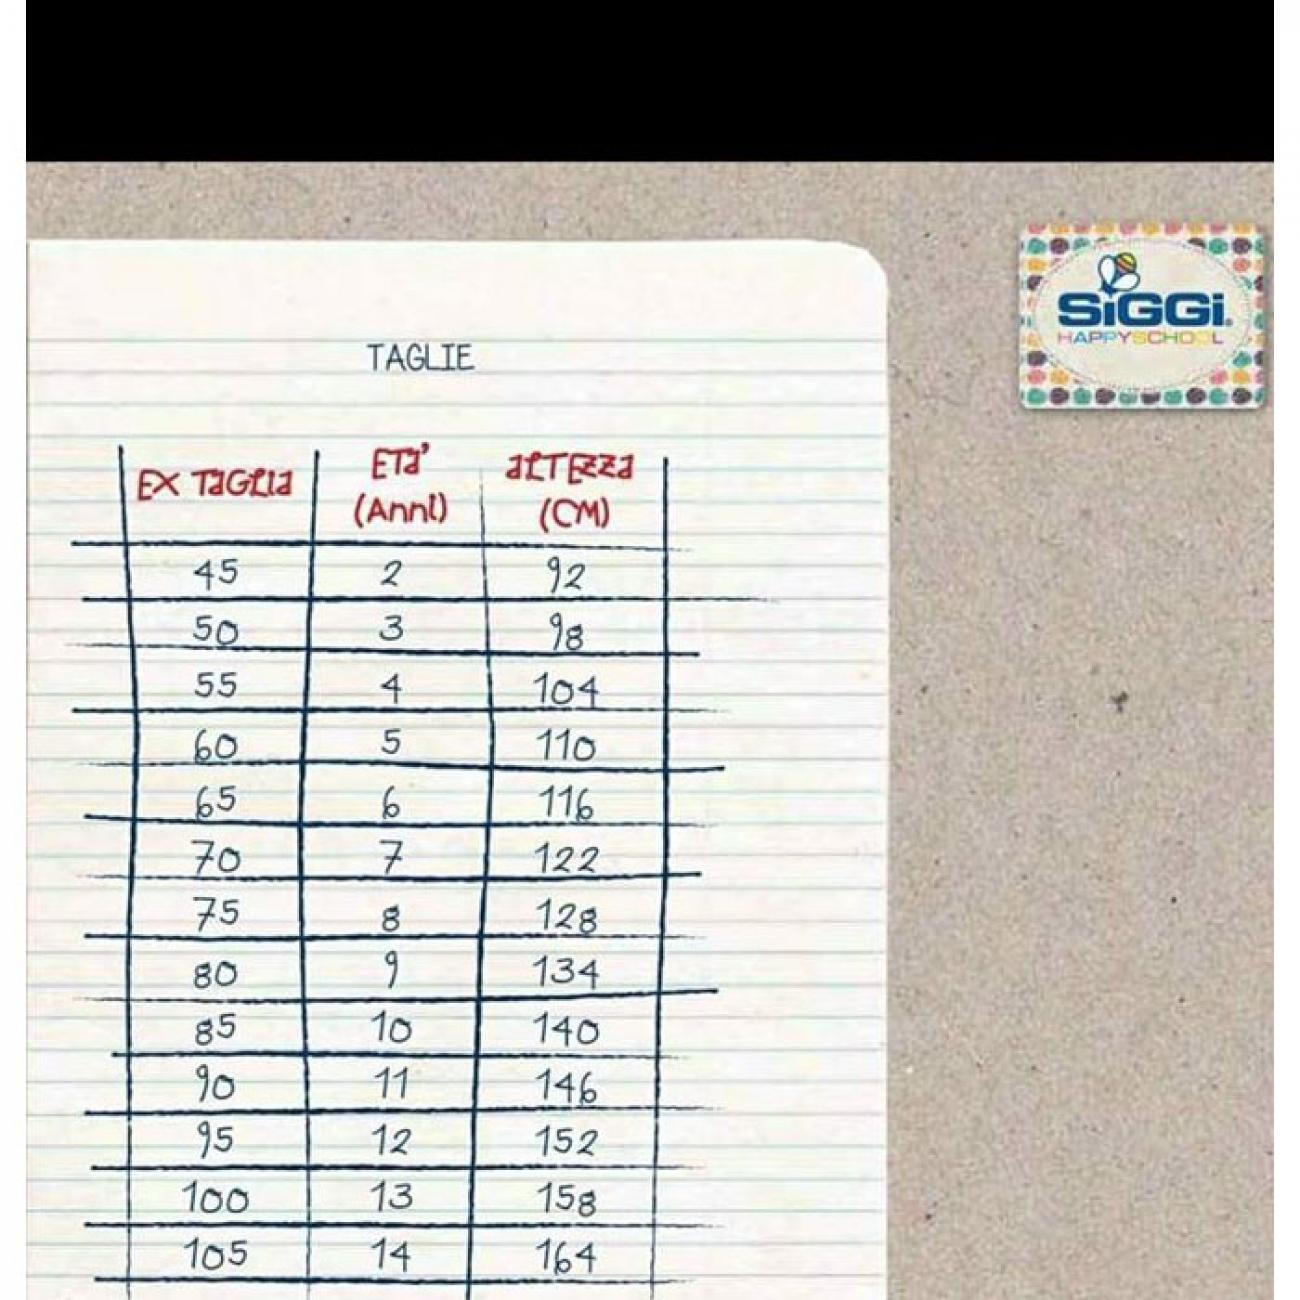 SiGGi®
HAPPYSCHOOL
TAGLIE
EX TAGLIA ETA' (Anni) ALTEZZA (CM)
45 2 92
50 3 98
55 4 104
60 5 110
65 6 116
70 7 122
75 8 128
80 9 134
85 10 140
90 11 146
95 12 152
100 13 158
105 14 164